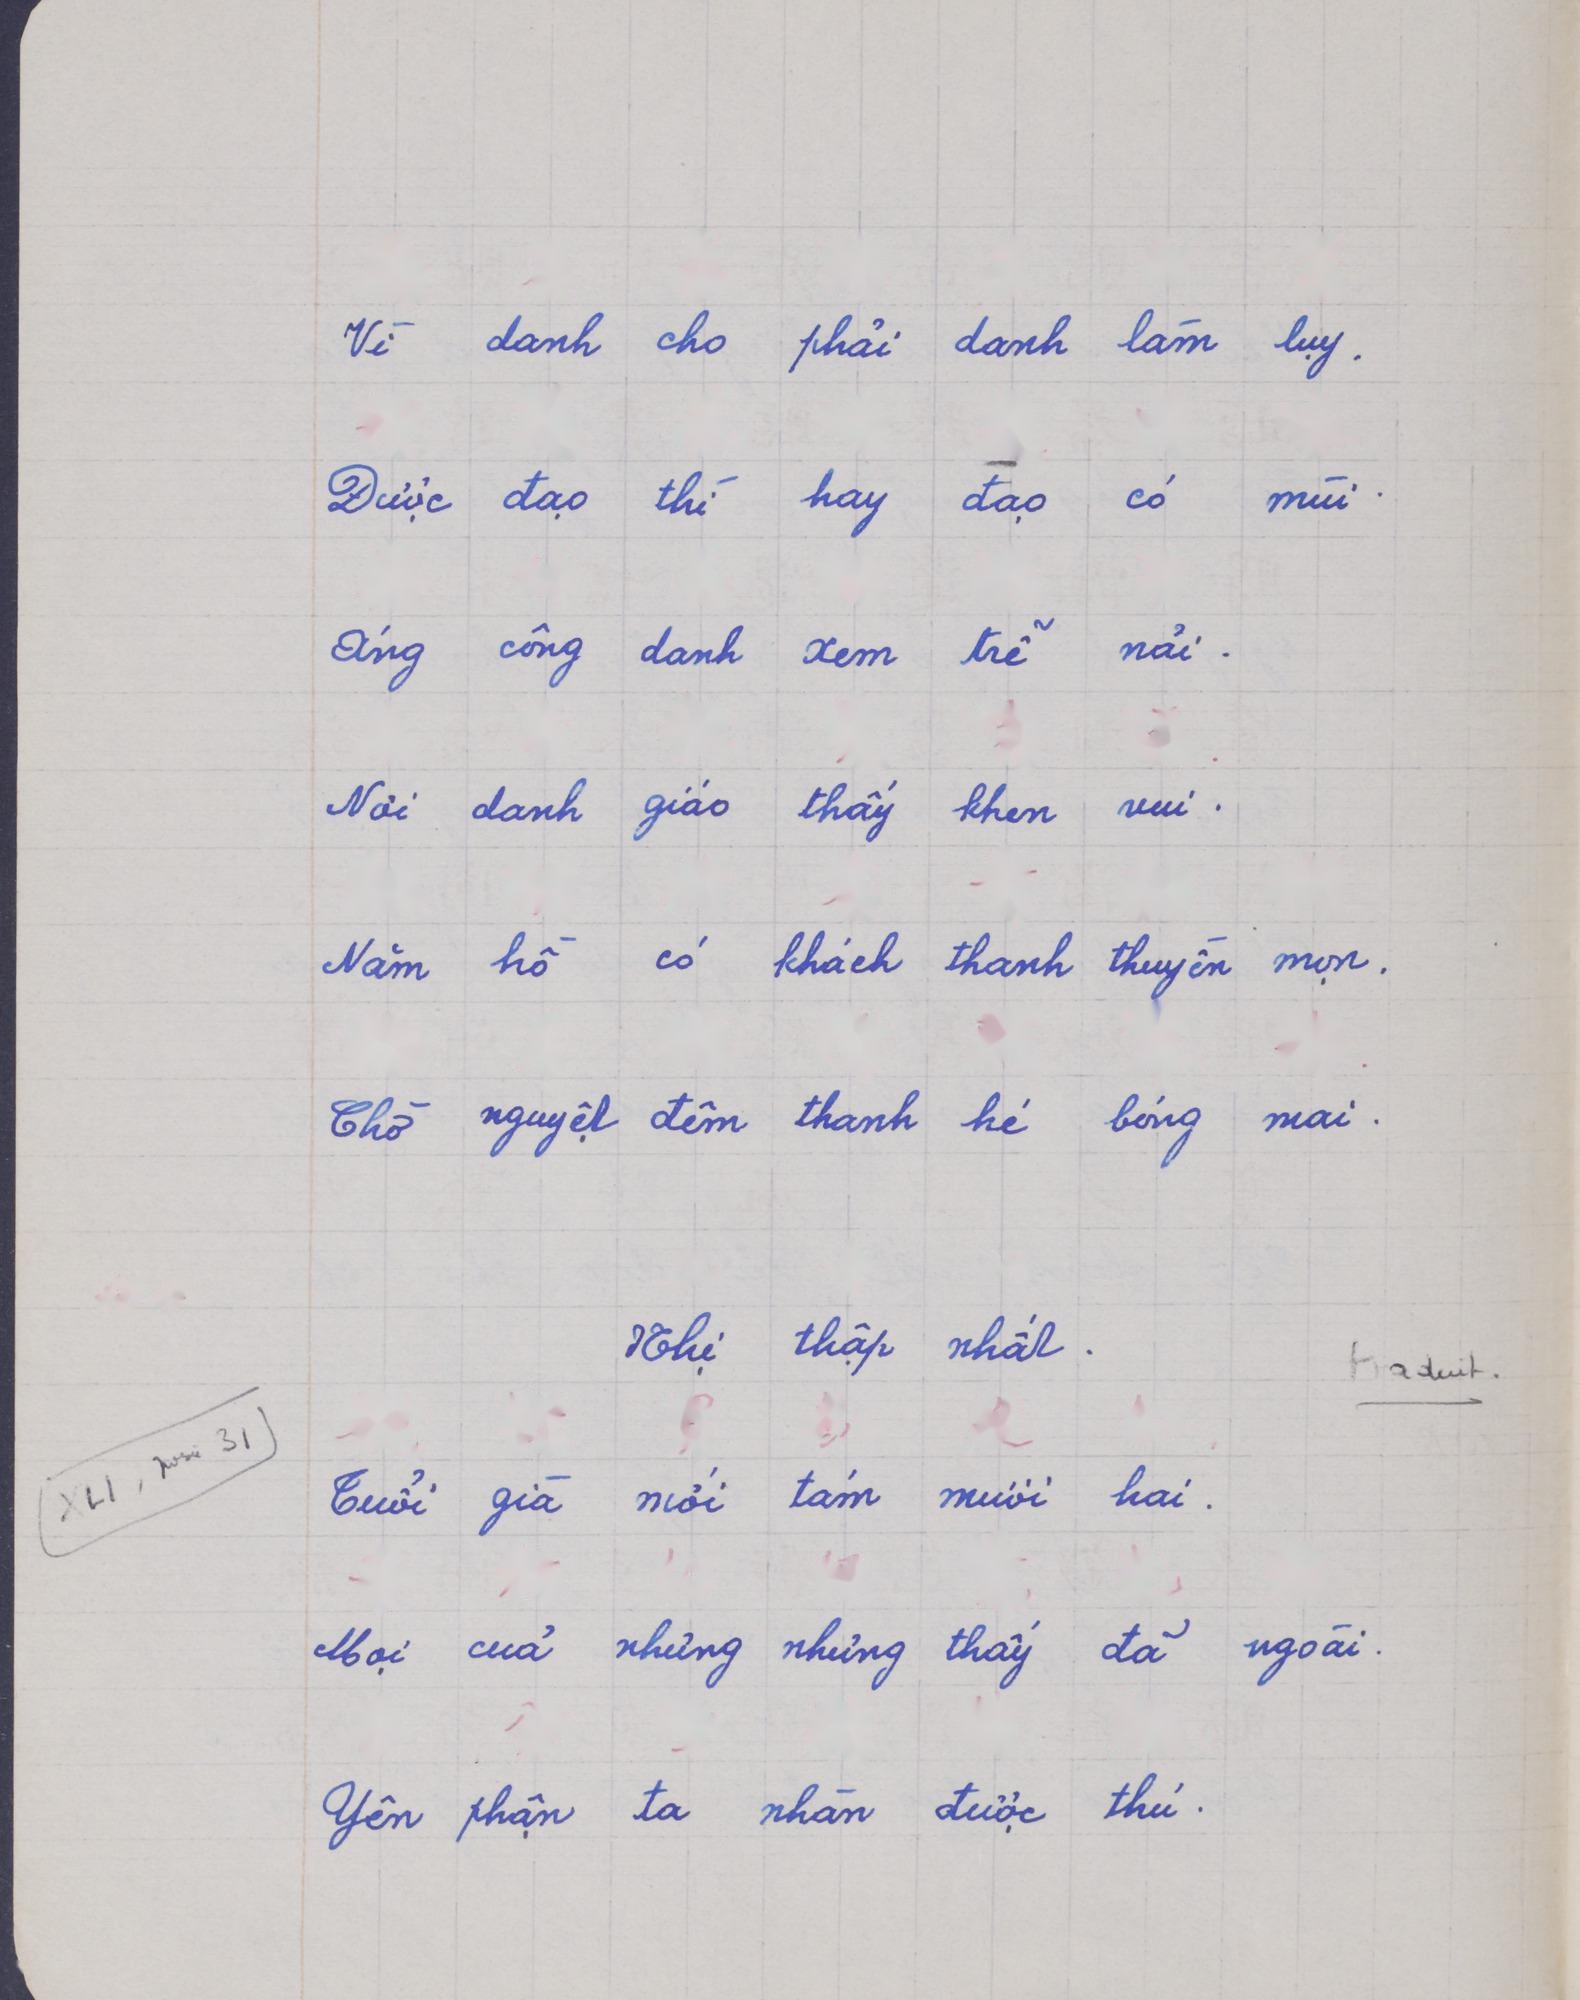 Vì danh cho phải danh làm lụy.
Được đạo thì hay đạo có mùi.
Áng công danh xem trễ nải.
Nơi danh giáo thấy khen vui.
Năm hồ có khách thanh thuyền mọn.
Thờ nguyệt đêm thanh hé bóng mai.
Nhị thập nhất.
traduit.
XLI, 31
Tuổi già mới tám mươi hai.
Mọi cuả nhửng nhửng thấy đã ngoài.
Yên phận ta nhàn được thú.